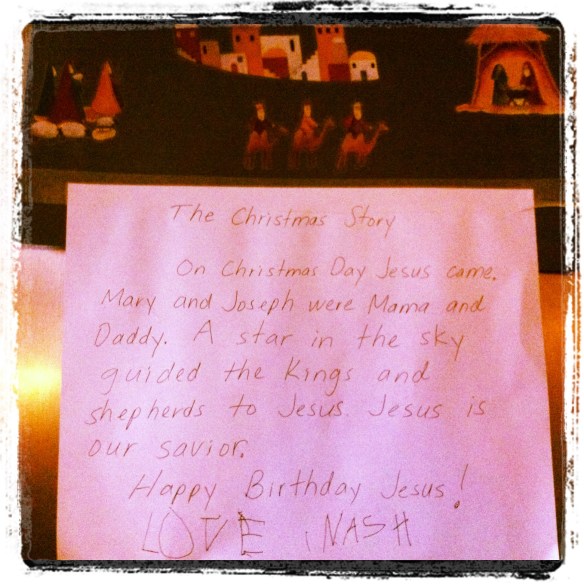 The Christmas Story
On Christmas Day Jesus came.
Mary and Joseph were Mama and
Daddy. A star in the sky
guided the Kings and
shepherds to Jesus. Jesus is
our savior.
Happy Birthday Jesus!
LOVE NASH